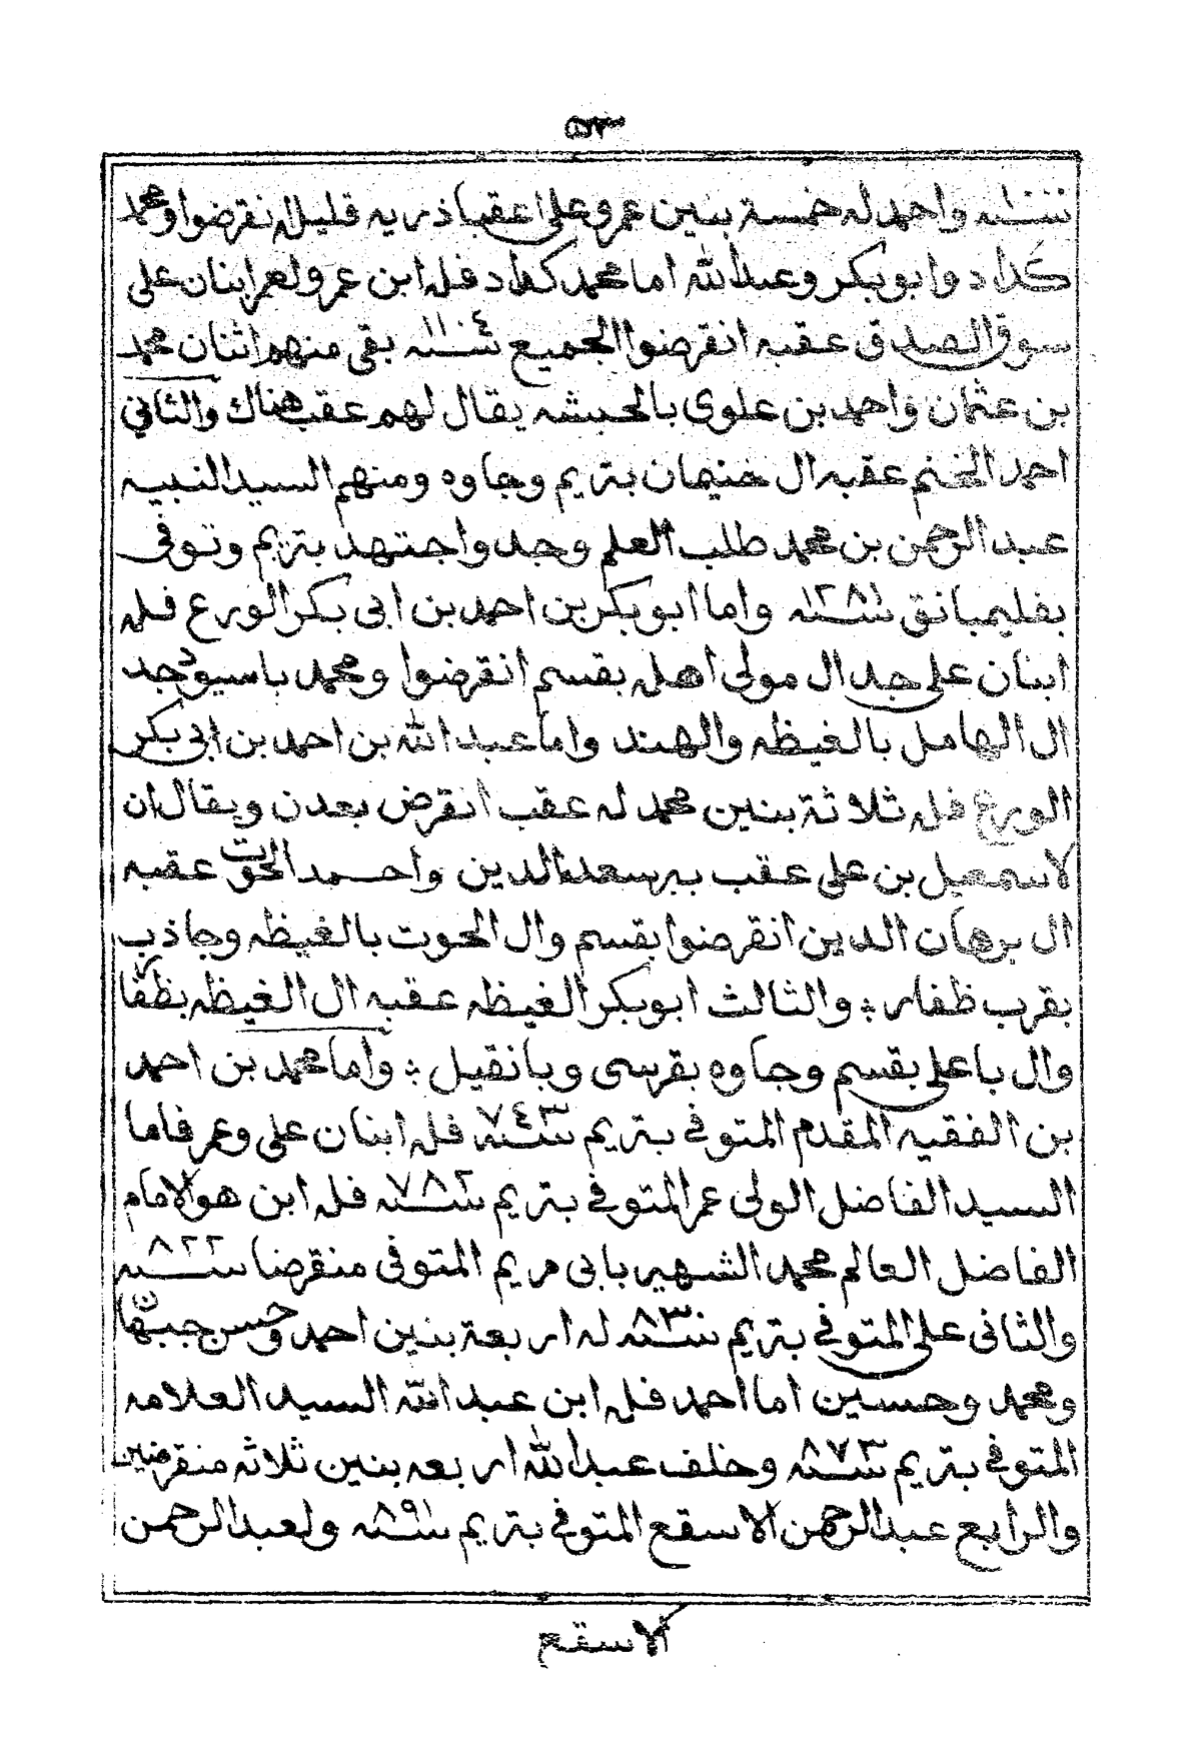 ٥٣
واحمد له خمسة بنين عمر وعلى اعقبا ذريه قليله نقرضوا ومحمد
كداد وابوبكر وعبدالله اما محمد كداد فله ابن عمر ولعمر ابنان على
سوق الصدق عقبه انقرضوا الجميع سنه ١١٠٤ بقى منهم اثنان محمد
بن عثمان واحمد بن علوى بالحبشه يقال لهم عقب هناك والثاني
احمد الخنم عقبه ال خنيمان بتريم وجاوه ومنهم السيد النبيه
عبد الرحمن بن محمد طلب العلم وجد واجتهد بتريم وتوفى
بفليمبانق سنه ١٢٨١ واما ابوبكر بن احمد بن ابى بكر الورع فله
ابنان على جد ال مولى اهله بقسم انقرضوا ومحمد باسيود جد
ال الهامل بالغيظه والهند واما عبد الله بن احمد بن ابى بكر
الورع فله ثلاثة بنين محمد له عقب انقرض بعدن ويقال ان
لاسمعيل بن على عقب ببر سعد الدين واحمد الحوت عقبه
ال برهان الدين انقرضوا بقسم وال الحوت بالغيظه وجاذب
بقرب ظفار ؛ والثالث ابوبكر الغيظه عقبه ال الغيظه بظفار
وال باعلى بقسم وجاوه بقرسى وبانقيل ؛ واما محمد بن احمد
بن الفقيه المقدم المتوفي بتريم سنه ٧٤٣ فله ابنان على وعمر فاما
السيد الفاضل الولى عمر المتوفي بتريم سنه ٧٨٢ فله ابن هو الامام
الفاضل العالم محمد الشهير بابى مريم المتوفى منقرضا سنه ٨٢٢
والثانى على المتوفي بتريم سنه ٨٣٠ له اربعة بنين احمد وحسن جبهان
ومحمد وحسين اما احمد فله ابن عبد الله السيد العلامه
المتوفي بتريم سنه ٨٧٣ وخلف عبدالله اربعه بنين ثلاثه منقرضين
والرابع عبدالرحمن الاسقع المتوفي بتريم سنه ٨٩١ ولعبد الرحمن
الاسقع